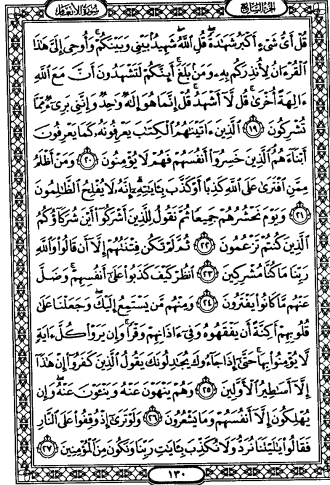 الجزء السابع سورة الأنعام
قُلْ أَىُّ شَىْءٍ أَكْبَرُ شَهَٰدَةً قُلِ ٱللَّهُ شَهِيدٌۢ بَيْنِى وَبَيْنَكُمْ وَأُوحِىَ إِلَىَّ هَٰذَا
ٱلْقُرْءَانُ لِأُنذِرَكُم بِهِۦ وَمَنۢ بَلَغَ أَئِنَّكُمْ لَتَشْهَدُونَ أَنَّ مَعَ ٱللَّهِ
ءَالِهَةً أُخْرَىٰ قُل لَّآ أَشْهَدُ قُلْ إِنَّمَا هُوَ إِلَٰهٌ وَٰحِدٌ وَإِنَّنِى بَرِىٓءٌ مِّمَّا
تُشْرِكُونَ ﴿١٩﴾ ٱلَّذِينَ ءَاتَيْنَٰهُمُ ٱلْكِتَٰبَ يَعْرِفُونَهُۥ كَمَا يَعْرِفُونَ
أَبْنَآءَهُمُ ٱلَّذِينَ خَسِرُوٓا۟ أَنفُسَهُمْ فَهُمْ لَا يُؤْمِنُونَ ﴿٢٠﴾ وَمَنْ أَظْلَمُ
مِمَّنِ ٱفْتَرَىٰ عَلَى ٱللَّهِ كَذِبًا أَوْ كَذَّبَ بِـَٔايَٰتِهِۦٓ إِنَّهُۥ لَا يُفْلِحُ ٱلظَّٰلِمُونَ
﴿٢١﴾ وَيَوْمَ نَحْشُرُهُمْ جَمِيعًا ثُمَّ نَقُولُ لِلَّذِينَ أَشْرَكُوٓا۟ أَيْنَ شُرَكَآؤُكُمُ
ٱلَّذِينَ كُنتُمْ تَزْعُمُونَ ﴿٢٢﴾ ثُمَّ لَمْ تَكُن فِتْنَتُهُمْ إِلَّآ أَن قَالُوا۟ وَٱللَّهِ
رَبِّنَا مَا كُنَّا مُشْرِكِينَ ﴿٢٣﴾ ٱنظُرْ كَيْفَ كَذَبُوا۟ عَلَىٰٓ أَنفُسِهِمْ وَضَلَّ
عَنْهُم مَّا كَانُوا۟ يَفْتَرُونَ ﴿٢٤﴾ وَمِنْهُم مَّن يَسْتَمِعُ إِلَيْكَ وَجَعَلْنَا عَلَىٰ
قُلُوبِهِمْ أَكِنَّةً أَن يَفْقَهُوهُ وَفِىٓ ءَاذَانِهِمْ وَقْرًا وَإِن يَرَوْا۟ كُلَّ ءَايَةٍ
لَّا يُؤْمِنُوا۟ بِهَا حَتَّىٰٓ إِذَا جَآءُوكَ يُجَٰدِلُونَكَ يَقُولُ ٱلَّذِينَ كَفَرُوٓا۟ إِنْ هَٰذَآ
إِلَّآ أَسَٰطِيرُ ٱلْأَوَّلِينَ ﴿٢٥﴾ وَهُمْ يَنْهَوْنَ عَنْهُ وَيَنْـَٔوْنَ عَنْهُ وَإِن
يُهْلِكُونَ إِلَّآ أَنفُسَهُمْ وَمَا يَشْعُرُونَ ﴿٢٦﴾ وَلَوْ تَرَىٰٓ إِذْ وُقِفُوا۟ عَلَى ٱلنَّارِ
فَقَالُوا۟ يَٰلَيْتَنَا نُرَدُّ وَلَا نُكَذِّبَ بِـَٔايَٰتِ رَبِّنَا وَنَكُونَ مِنَ ٱلْمُؤْمِنِينَ ﴿٢٧﴾
١٣٠